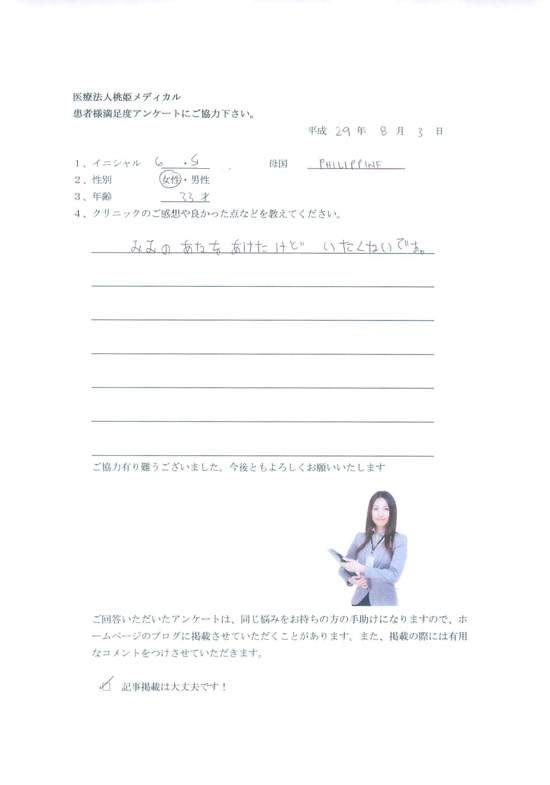 医療法人桃姫メディカル
患者様満足度アンケートにご協力下さい。
平成 29 年 8 月 3 日
1、イニシャル G ・ S 母国 PHILIPPINE
2、性別 女性・男性
3、年齢 33才
4、クリニックのご感想や良かった点などを教えてください。
みみの あなを あけたけど いたくないです。
ご協力有り難うございました。今後ともよろしくお願いいたします
ご回答いただいたアンケートは、同じ悩みをお持ちの方の手助けになりますので、ホ
ームページのブログに掲載させていただくことがあります。また、掲載の際には有用
なコメントをつけさせていただきます。
記事掲載は大丈夫です！